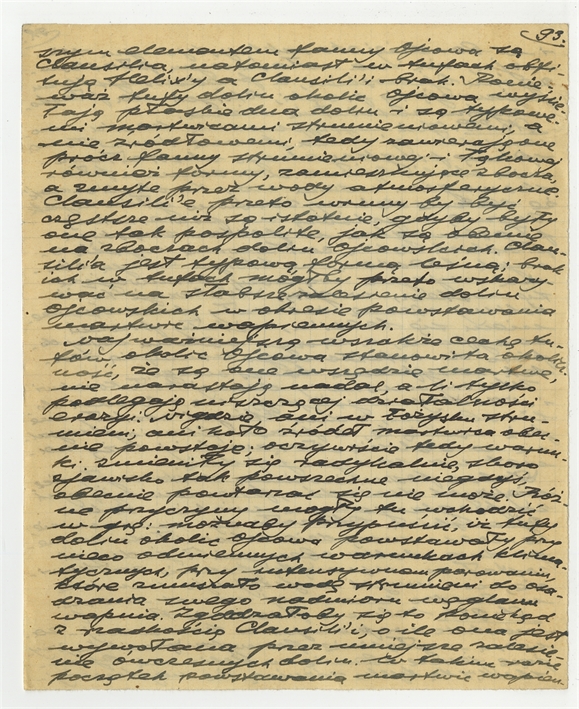 93.
szym elementem fauny Ojcowa są
Clausilia, natomiast w tufach obfi-
tują Helix'y a Clausilii brak. Ponie-
waż tufy dolin okolic Ojcowa wyście-
łają płaskie dna dolin i są typowe-
mi martwicami strumieniowemi, a
nie źródłowemi, tedy zawierają one
prócz fauny strumieniowej i łąkowej
również formy, zamieszkujące zbocza,
a zmyte przez wody atmosferyczne.
Clausilie przeto winny by być
częstsze niż są istotnie, gdyby były
one tak pospolite, jak są obecnie
na zboczach dolin Ojcowskich. Clau-
silia jest typową formą leśną; brak
ich w tufach mógłby przeto wskazy-
wać na słabsze zalesienie dolin
ojcowskich w okresie powstawania
martwic wapiennych.
Najważniejszą wszakże cechę tu-
fów okolic Ojcowa stanowi ta okolicz-
ność, że są one wszędzie martwe,
nie narastają nadal, a li tylko
podlegają niszczącej działalności
erozji. Nigdzie, ani w łożysku stru-
mieni, ani koło źródeł martwica obec-
nie nie powstaje, oczywiście tedy warun-
ki zmieniły się radykalnie, skoro
zjawisko tak powszechne niegdyś,
obecnie powtarzać się nie może. Róż-
ne przyczyny mogły tu wchodzić
w grę: możnaby przypuścić, iż tufy
dolin okolic Ojcowa powstawały przy
nieco odmiennych warunkach klima-
tycznych, przy intensywnem parowaniu,
które zmuszało wodę strumieni do osa-
dzania swego nadmiaru węglanu
wapnia. Zgadzałoby się to poniekąd
z rzadkością Clausilii, o ile ona jest
wywołana przez mniejsze zalesie-
nie ówczesnych dolin. W takim razie
początek powstawania martwic wapien-